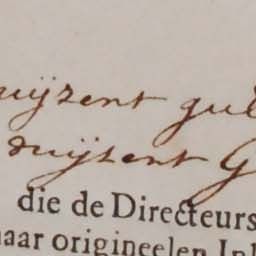 uijzent gul
duijzent G
die de Directeurs
naar origineelen Inl